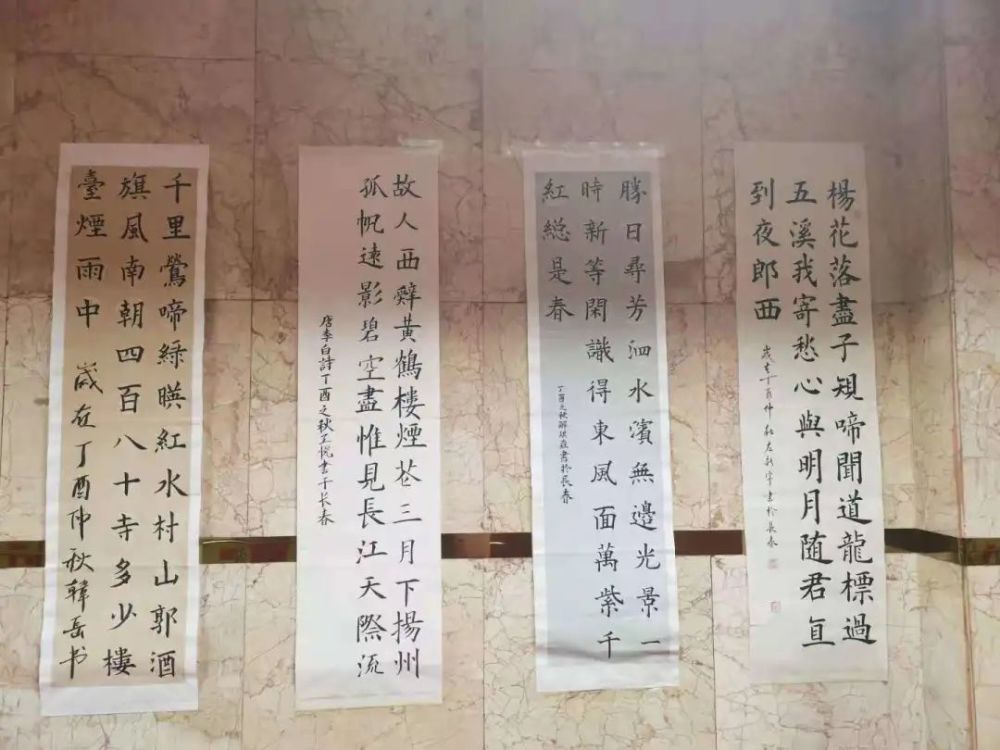 楊花落盡子規啼聞道龍標過
五溪我寄愁心與明月随君直
到夜郎西
歲在丁酉仲秋左新宇書於長春
勝日尋芳泗水濱無邊光景一
時新等閑識得東風面萬紫千
紅総是春
丁酉之秋解書於長春
故人西辭黃鶴樓煙花三月下揚州
孤帆遠影碧空盡惟見長江天際流
唐李白詩丁酉之秋王悦書于长春
千里鶯啼綠暎紅水村山郭酒
旗風南朝四百八十寺多少樓
臺煙雨中 歲在丁酉仲秋韓岳书